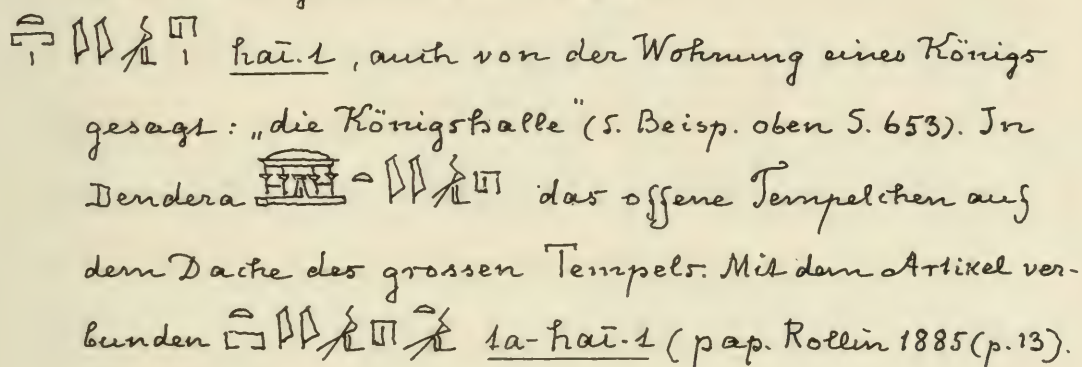 haī.t, auch von der Wohnung eines Königs
gesagt: „die Königshalle“ (s. Beisp. oben S. 653). In
Dendera das offene Tempelchen auf
dem Dache des grossen Tempels. Mit dem Artikel ver-
bunden ta-haī.t (pap. Rollin 1885 (p. 13).